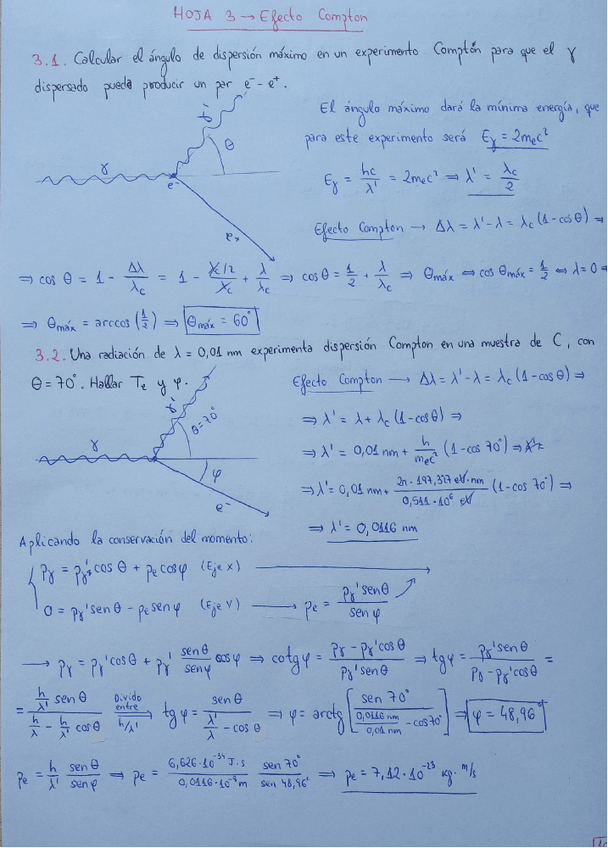 HOJA 3 → Efecto Compton
3.1. Calcular el ángulo de dispersión máximo en un experimento Comptón para que el γ
dispersado pueda producir un par e⁻ - e⁺.
El ángulo máximo dará la mínima energía, que
para este experimento será Eγ = 2mec²
γ'
θ
γ
e⁻
Eγ = hc/λ' = 2mec² ⇒ λ' = λc/2
Efecto Compton → Δλ = λ' - λ = λc (1 - cosθ) ⇒
⇒ cos θ = 1 - Δλ/λc = 1 - (λc/2)/λc + λ/λc ⇒ cosθ = 1/2 + λ/λc ⇒ θmáx ⇔ cos θmáx = 1/2 ⇔ λ = 0 ⇒
⇒ θmáx = arccos (1/2) ⇒ θmáx = 60°
3.2. Una radiación de λ = 0,01 nm experimenta dispersión Compton en una muestra de C, con
θ = 70°. Hallar Te y φ.
Efecto Compton → Δλ = λ' - λ = λc (1 - cosθ) ⇒
γ'
θ = 70°
γ
φ
e⁻
⇒ λ' = λ + λc (1 - cosθ) ⇒
⇒ λ' = 0,01 nm + h/mec (1 - cos 70°) ⇒
⇒ λ' = 0,01 nm + 2π · 197,327 eV·nm / 0,511 · 10⁶ eV (1 - cos 70°) ⇒
⇒ λ' = 0,0116 nm
Aplicando la conservación del momento:
pγ = pγ' cos θ + pe cosφ (Eje X)
0 = pγ' senθ - pe senφ (Eje Y) → pe = pγ' senθ / sen φ
→ pγ = pγ' cosθ + pγ' senθ/senφ cosφ ⇒ cotgφ = (pγ - pγ' cosθ)/(pγ' senθ) ⇒ tgφ = pγ' senθ/(pγ - pγ' cosθ) =
= (h/λ' senθ)/(h/λ - h/λ' cosθ) Divido entre h/λ' → tgφ = senθ/(λ'/λ - cos θ) ⇒ φ = arctg [sen 70°/(0,0116 nm/0,01 nm - cos70°)] ⇒ φ = 48,96°
pe = h/λ' senθ/senφ ⇒ pe = 6,626·10⁻³⁴ J·s / 0,0116·10⁻⁹ m sen 70°/sen 48,96° ⇒ pe = 7,12·10⁻²³ kg · m/s